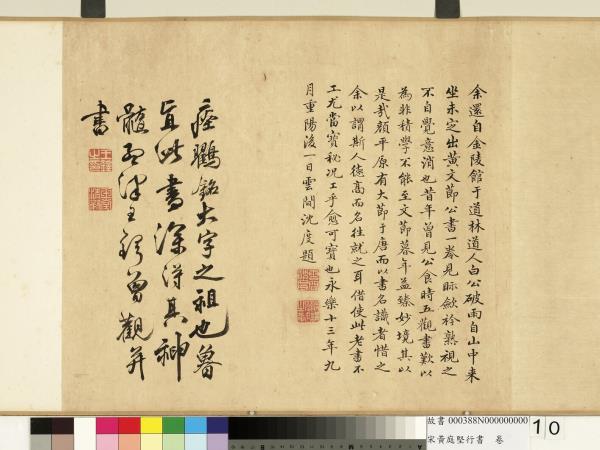 余還自金陵館于道林道人白公破雨自山中来
坐未定出黄文節公書一卷見眎歛衿熟視之
不自覺意消也昔年曾見公食時五觀書歎以
為非積學不能至文節暮年益臻妙境其以
是哉顔平原有大節于唐而以書名識者惜之
余以謂斯人徳高而名徃就之耳借使此老書不
工尤當寶秘况工乎愈可寶也永樂十三年九
月重陽後一日雲間沈度題
瘗鶴銘大字之祖也魯
直此書深得其神
髓
王穉登觀并
書
故書 000388N000000000
宋黃庭堅行書 卷
10